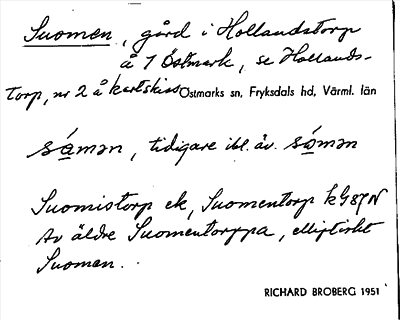 Suomen, gård i Hollandstorp
å 1 Östmark, se Hollands-
torp, nr 2 å kartskiss Östmarks sn, Fryksdals hd, Värml. län
sámən, tidigare ibl. äv. sómən
Suomistorp ek, Suomentorp kG87N
Av äldre Suomentorppa, elliptiskt
Suomen.
RICHARD BROBERG 1951